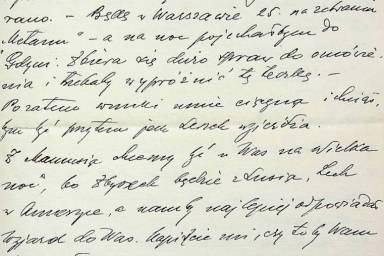 rano. – Będę w Warszawie 25. na zebraniu
"Metanu" – a na noc pojechałbym do
Gdyni. Zbiera się dużo spraw do omówie-
nia i trzebaby wypróżnić tę
Pozatem wnuki mnie ciągną i
żyć przytem jak Leszek wyjeżdża.
Z Mamusią chcemy być u Was na Wielka-
noc, bo Zbyszek będzie z Lusią, Lech
w Ameryce, a nam by najlepiej odpowiadał
wyjazd do Was. Napiszcie mi, czy to by Wam